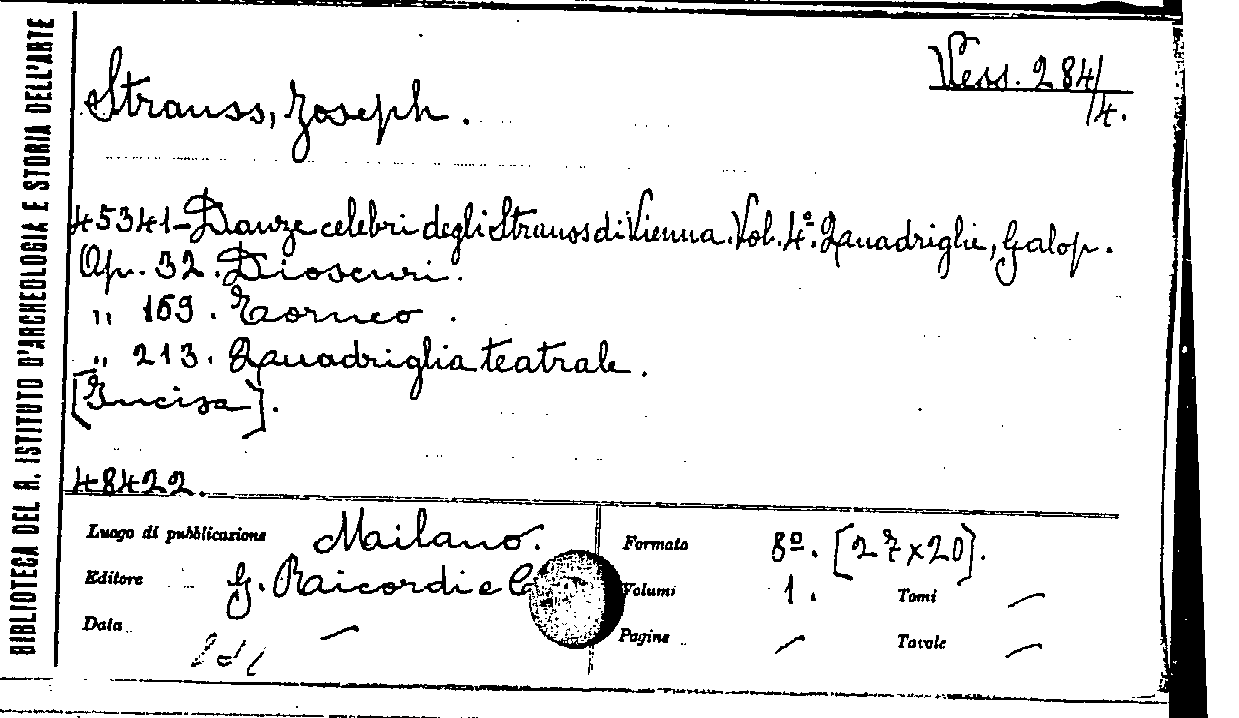 BIBLIOTECA DEL R. ISTITUTO D'ARCHEOLOGIA E STORIA DELL'ARTE
Vess. 284/4.
Strauss, Joseph.
45341-Danze celebri degli Strauss di Vienna. Vol. 4º. Quadriglie, Galop.
Op. 32. Dioscuri.
" 169. Torneo.
" 213. Quadriglia teatrale.
[Incisa].
48422.
Luogo di pubblicazione Mailano.
Editore G. Ricordi e C
Data —
Formato 8º. [27x20].
Volumi 1. Tomi —
Pagine — Tavole —